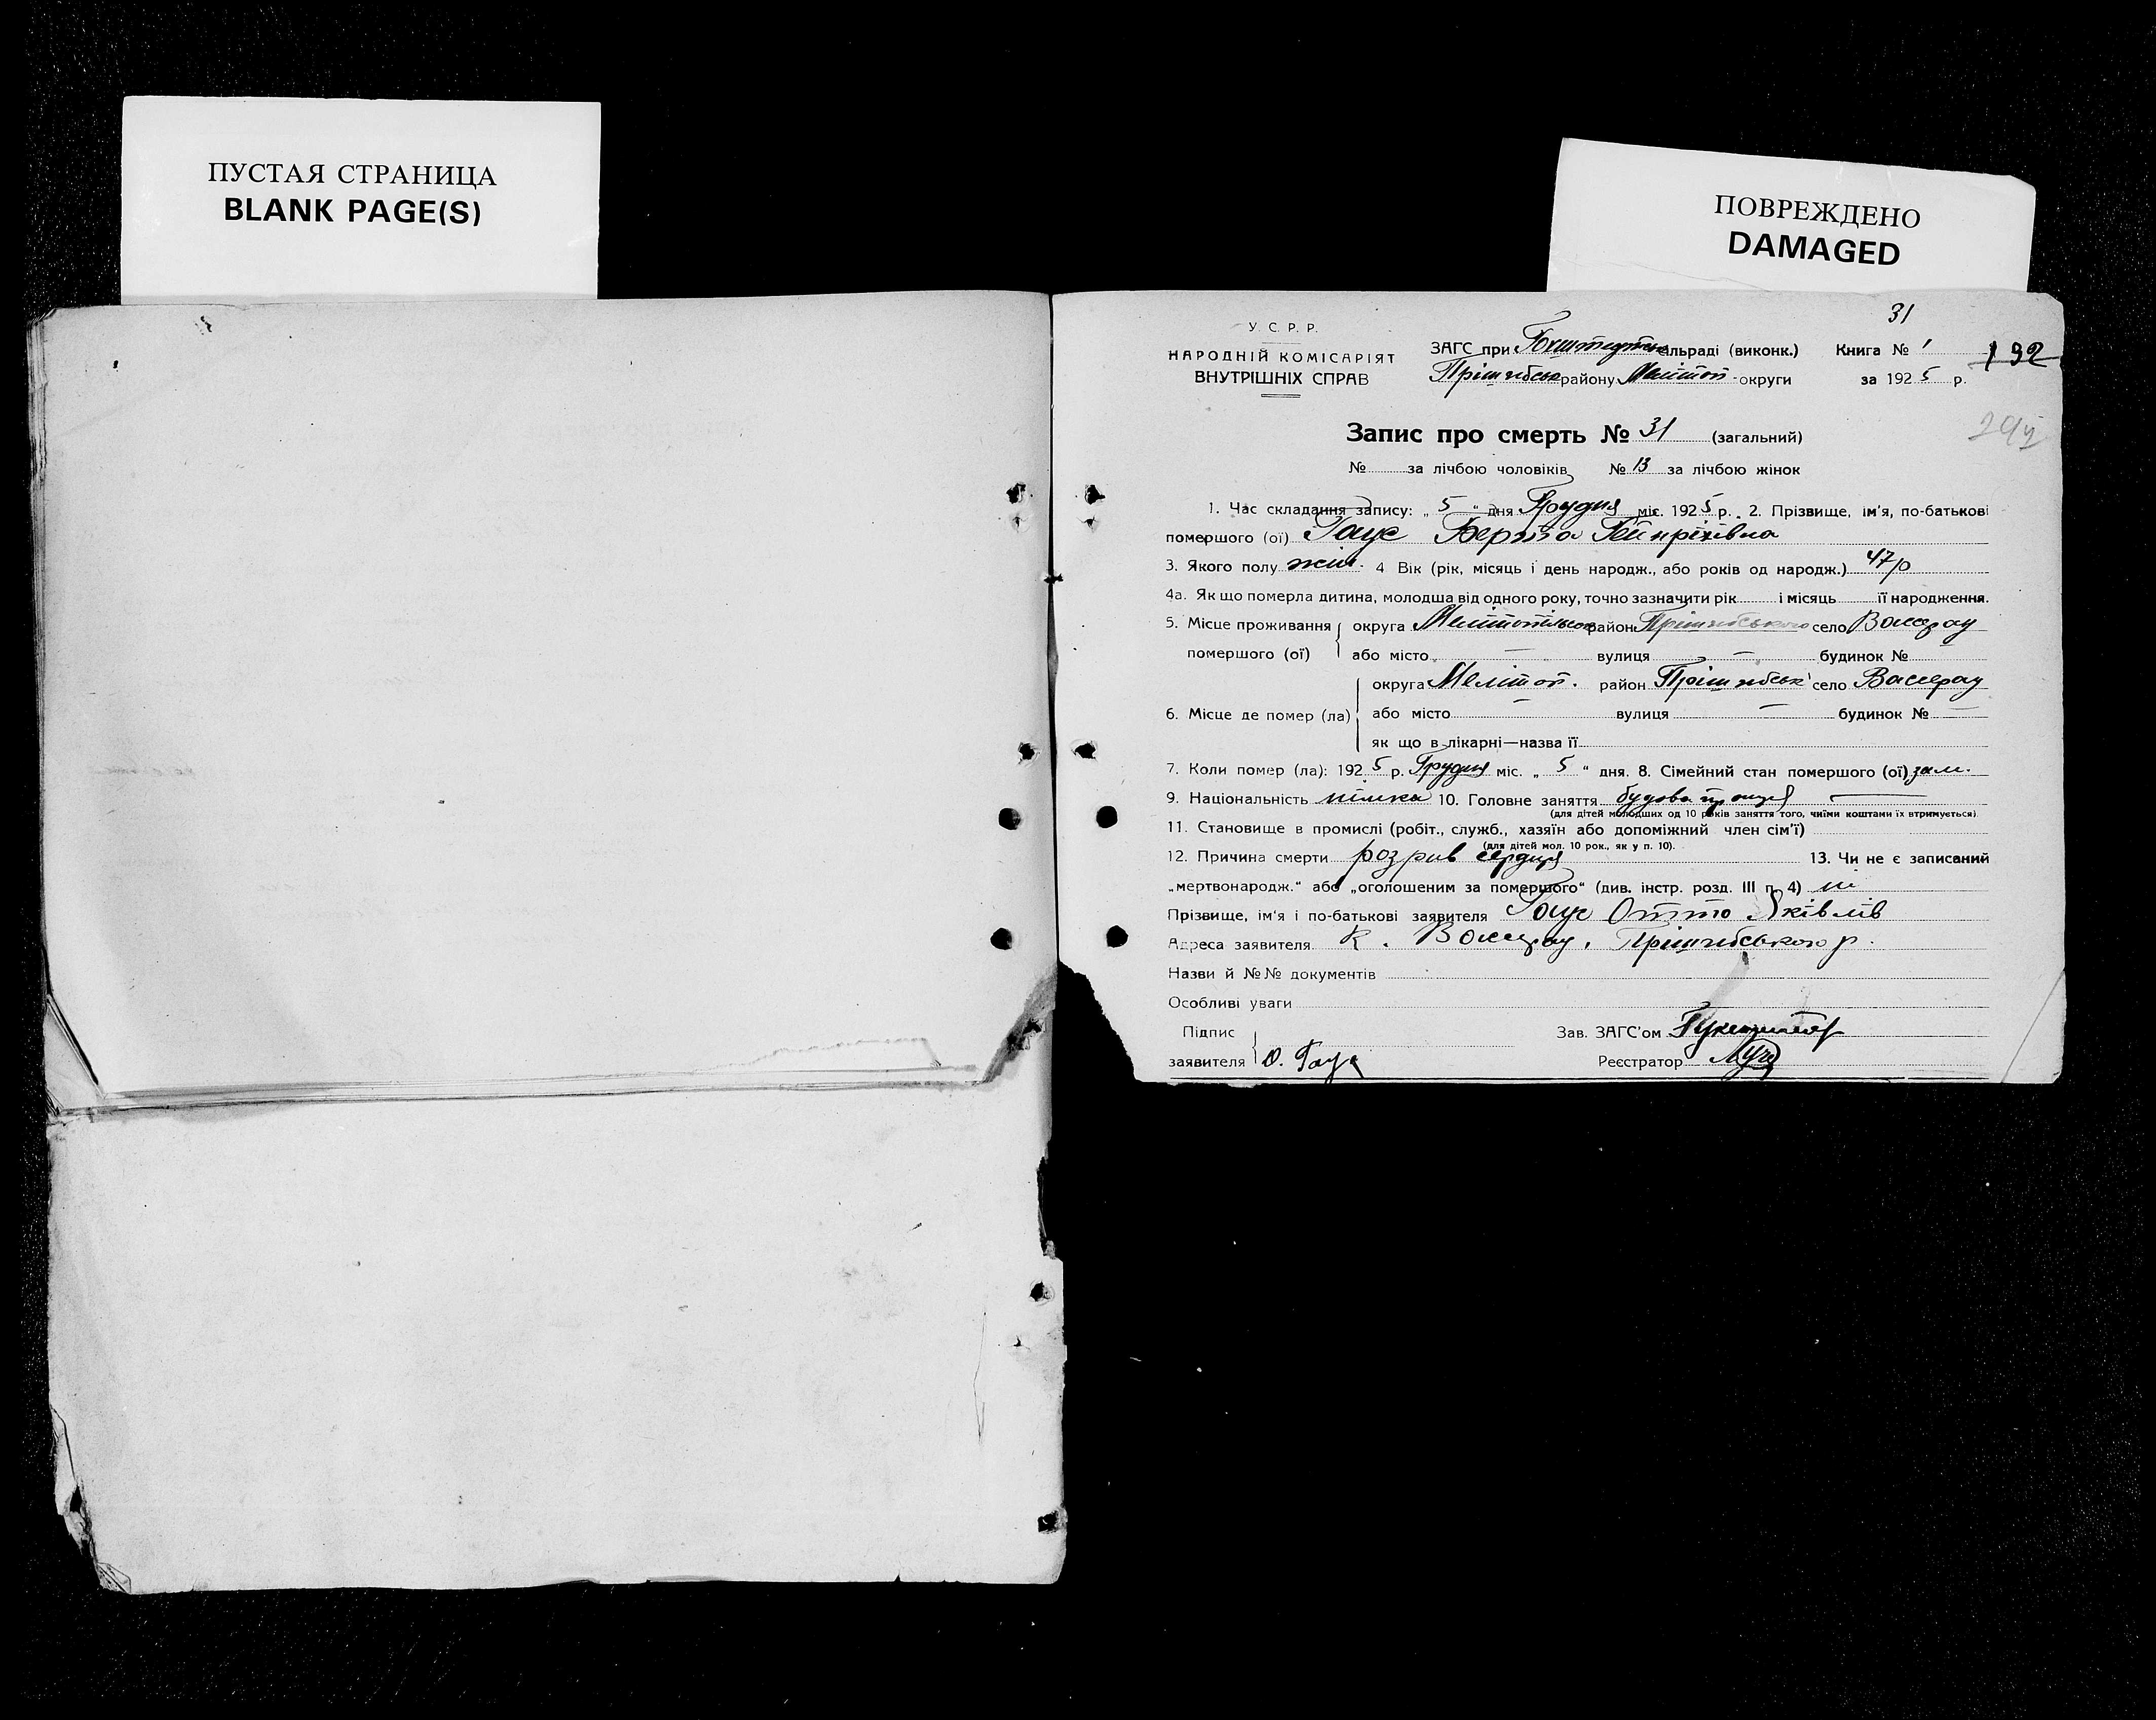 ПУСТАЯ СТРАНИЦА
BLANK PAGE(S)
ПОВРЕЖДЕНО
DAMAGED
31
У. С. Р. Р.
НАРОДНІЙ КОМІСАРІЯТ
ВНУТРІШНІХ СПРАВ
ЗАГС при сільраді (виконк.) Книга № 1
192
Прішибськ району Мелітоп - округи за 1925 р.
Запис про смерть № 31 (загальний)
№ за лічбою чоловіків № 13 за лічбою жінок
1. Час складання запису: „ 5 “ дня Грудня міс. 1925 р. 2. Прізвище, ім'я, по-батькові
помершого (ої) Гаус Берта Гейнріхівна
3. Якого полу жін. 4 Вік (рік, місяць і день народж., або років од народж.) 47 р
4а. Як що померла дитина, молодша від одного року, точно зазначити рік і місяць її народження.
5. Місце проживання помершого (ої) округа Мелітопільськ район Прішибського село Вассерау
або місто — вулиця — будинок №
6. Місце де помер (ла) округа Мелітоп. район Прішибськ село Вассерау
або місто — вулиця — будинок № —
як що в лікарні—назва її
7. Коли помер (ла): 1925 р. Грудня міс. „ 5 “ дня. 8. Сімейний стан помершого (ої) зам.
9. Національність німка 10. Головне заняття —
(для дітей молодших од 10 років заняття того, чиїми коштами їх втримується)
11. Становище в промислі (робіт., служб., хазяїн або допоміжний член сім'ї)
(для дітей мол. 10 рок., як у п. 10).
12. Причина смерти розрив сердця 13. Чи не є записаний
„мертвонародж.“ або „оголошеним за помершого“ (див. інстр. розд. III п. 4) ні
Прізвище, ім'я і по-батькові заявителя Гаус Отто Яківлів
Адреса заявителя к. Вассерау, Прішибського р.
Назви й №№ документів
Особливі уваги
Підпис заявителя О. Гаус
Зав. ЗАГС'ом
Реєстратор